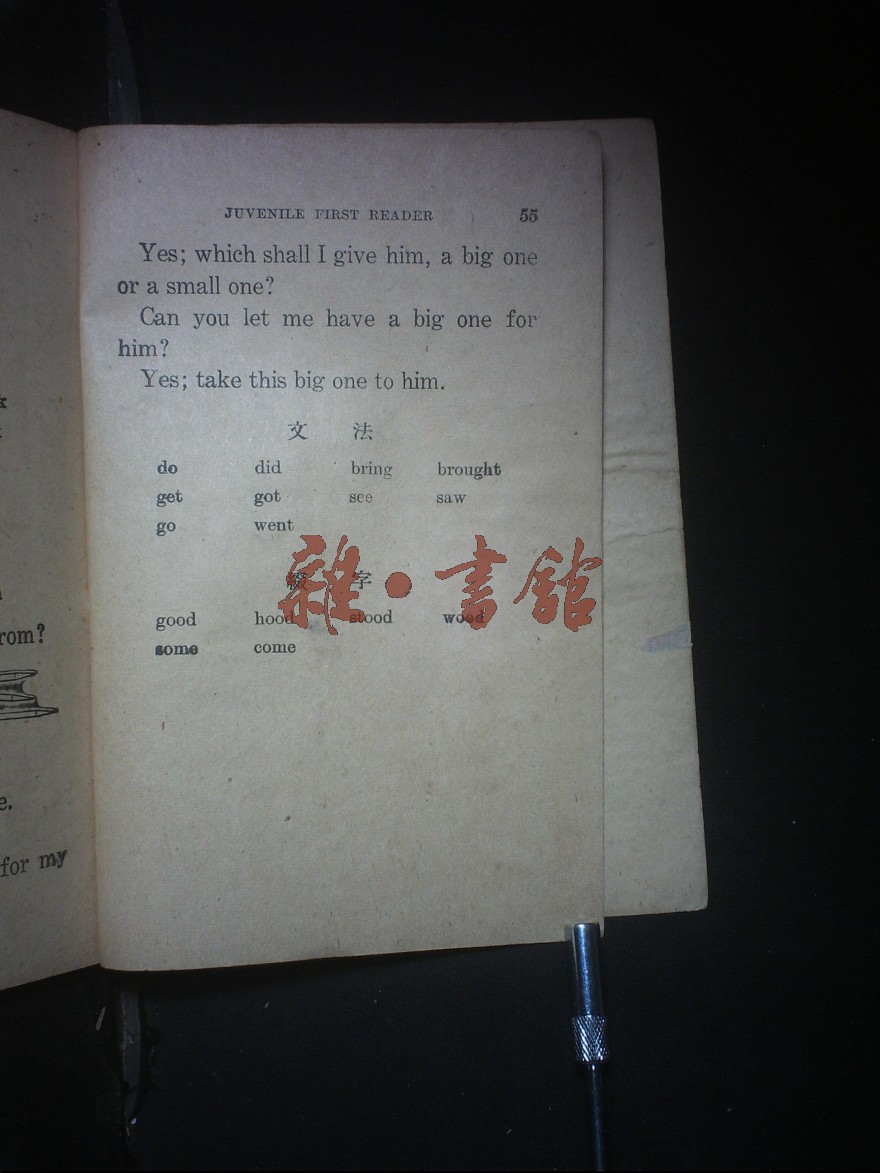 JUVENILE FIRST READER 55
Yes; which shall I give him, a big one
or a small one?
Can you let me have a big one for
him?
Yes; take this big one to him.
文 法
do did bring brought
get got see saw
go went
綴 字
good hood stood wood
some come
rom?
e.
for my
雜·書館